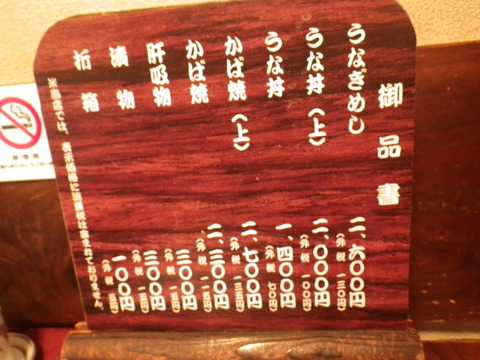 御品書
うなぎめし 二、六〇〇円
(外税 一三〇円)
うな丼(上) 二、〇〇〇円
(外税 一〇〇円)
うな丼 一、四〇〇円
(外税 七〇円)
かば焼(上) 二、七〇〇円
(外税 一三五円)
かば焼 二、三〇〇円
(外税 一一五円)
肝吸物 三〇〇円
(外税 一五円)
漬物 三〇〇円
(外税 一五円)
折箱 一〇〇円
(外税 五円)
※当店では、表示価格に消費税は含まれておりません。